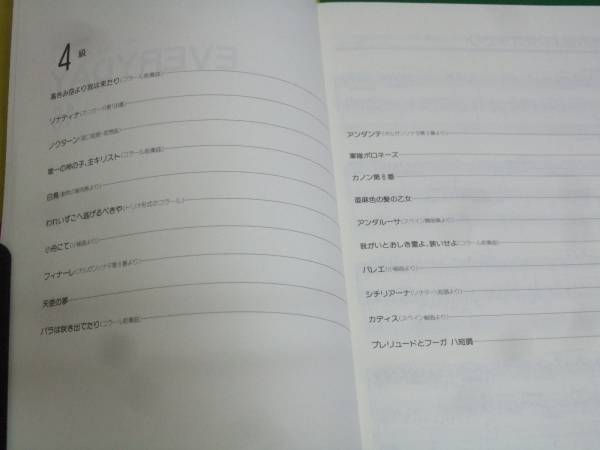 4級
高きみ空より我は来たり(コラール前奏曲)
ソナティナ
ノクターン
唯一の神の子、主キリスト(コラール前奏曲)
白鳥
われいずこへ逃げるべきや(トリオ形式のコラール)
小舟にて(小組曲より)
フィナーレ(オルガンソナタ第6番より)
天使の夢
バラは咲き出でたり(コラール前奏曲)
アンダンテ
軍隊ポロネーズ
カノン第6番
亜麻色の髪の乙女
アンダルーサ(スペイン舞曲集より)
我がいとおしき霊よ、装いせよ(コラール前奏曲)
バレエ(小組曲より)
シチリアーナ
カディス(スペイン組曲より)
プレリュードとフーガ ハ短調
EVERYDAY